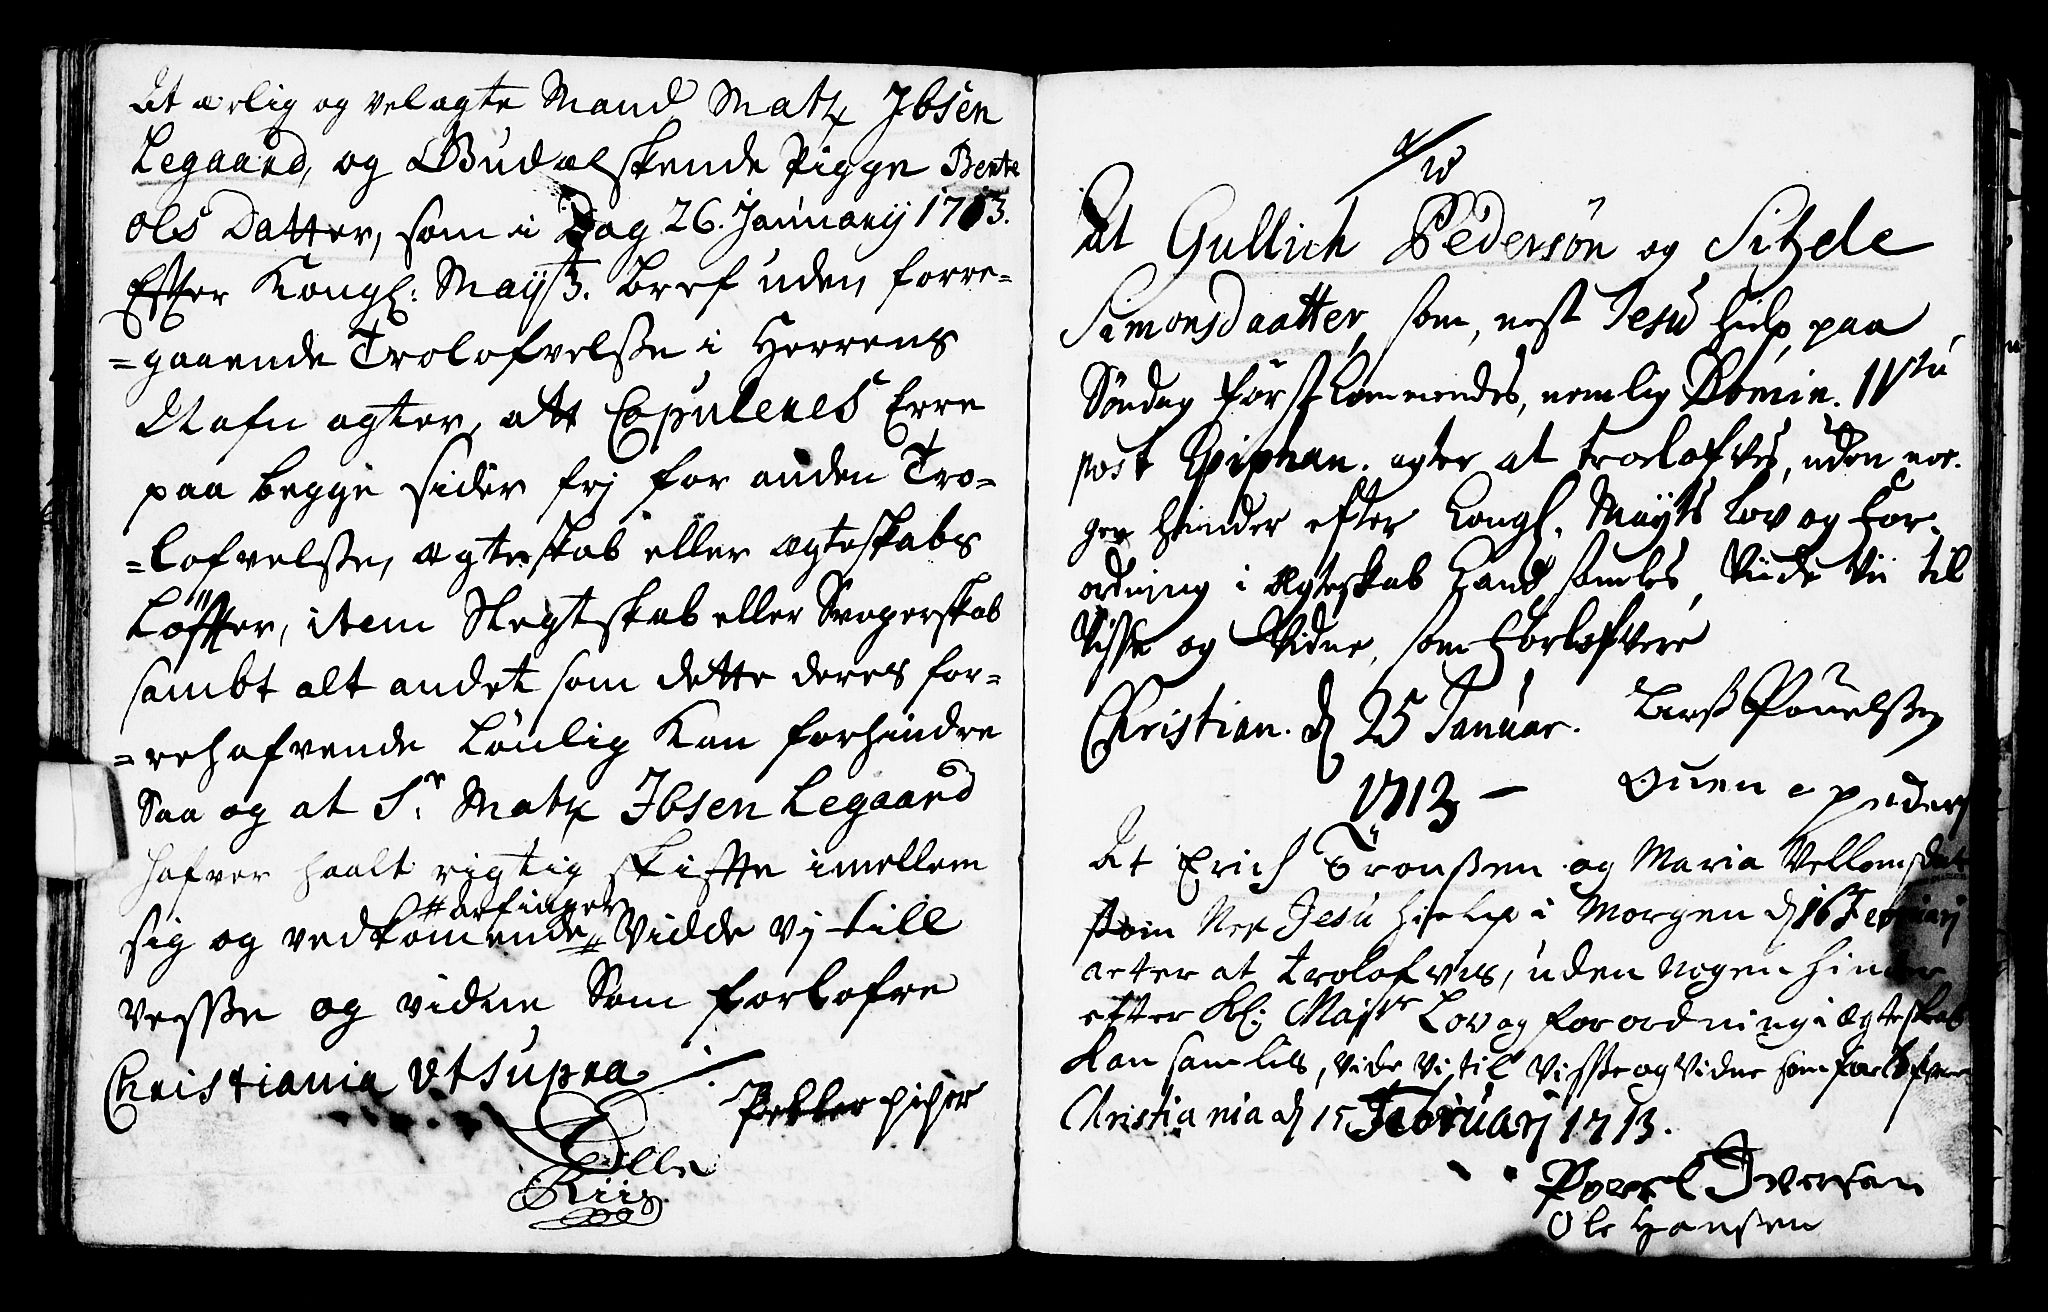 At ærlig og velagte Mand Matz Ibsen
Legaard, og Gudælskende Pigge Bente
Ols Datter, som i Dag 26. January 1713.
Efter Kongl: Mayst3. bref uden forre=
=gaaende Trolofvelsse i Herrens
Nafn agter, att Copuleres Erre
paa begge sider frj for anden Tro=
=lofvelsse, ægteskab eller ægteskabs
Löffter, item Slegtskab eller Svogerskab
sambt alt andet som dette deres for=
=rehafvende Lönlig Kan forhindre
Saa og at Sr. Matz Ibsen Legaard
hafver haalt rigtig skiffte imellem
sig og vedkomende arfinger Vidde vj till
vesse og vidne Som forlofre
Christiania Ut supra
Petter
Olle
Riis
At Gullich Pedersön og Sitzele
Simonsdaatter, som, nest Jesu hielp, paa
Söndag förstkommendes, nemlig Domin. IVta
post Epiphan. agter at trolofves, uden no-
gen hinder efter Kongl. Mayts Lov og For-
ordning i Ægteskab Kand samles, Viide Vii til
Visse og Vidne, som Forlofvere
Christian. d 25 Januar. Lars Pouelssen
1713 –
At Erich Tronssen og Maria Vellomsdat
som Nest Jesu hielp i Morgen d 16 Februarj
acter at trolofvis, uden nogen hinder
efter Kl: Maysts Lov og forordning i Ægteskab
Kan samlis, vide vi til Visse og Vidne som forlofvere
Christiania d 15 Februarj 1713.
Povel Iversen
Ole Hansen